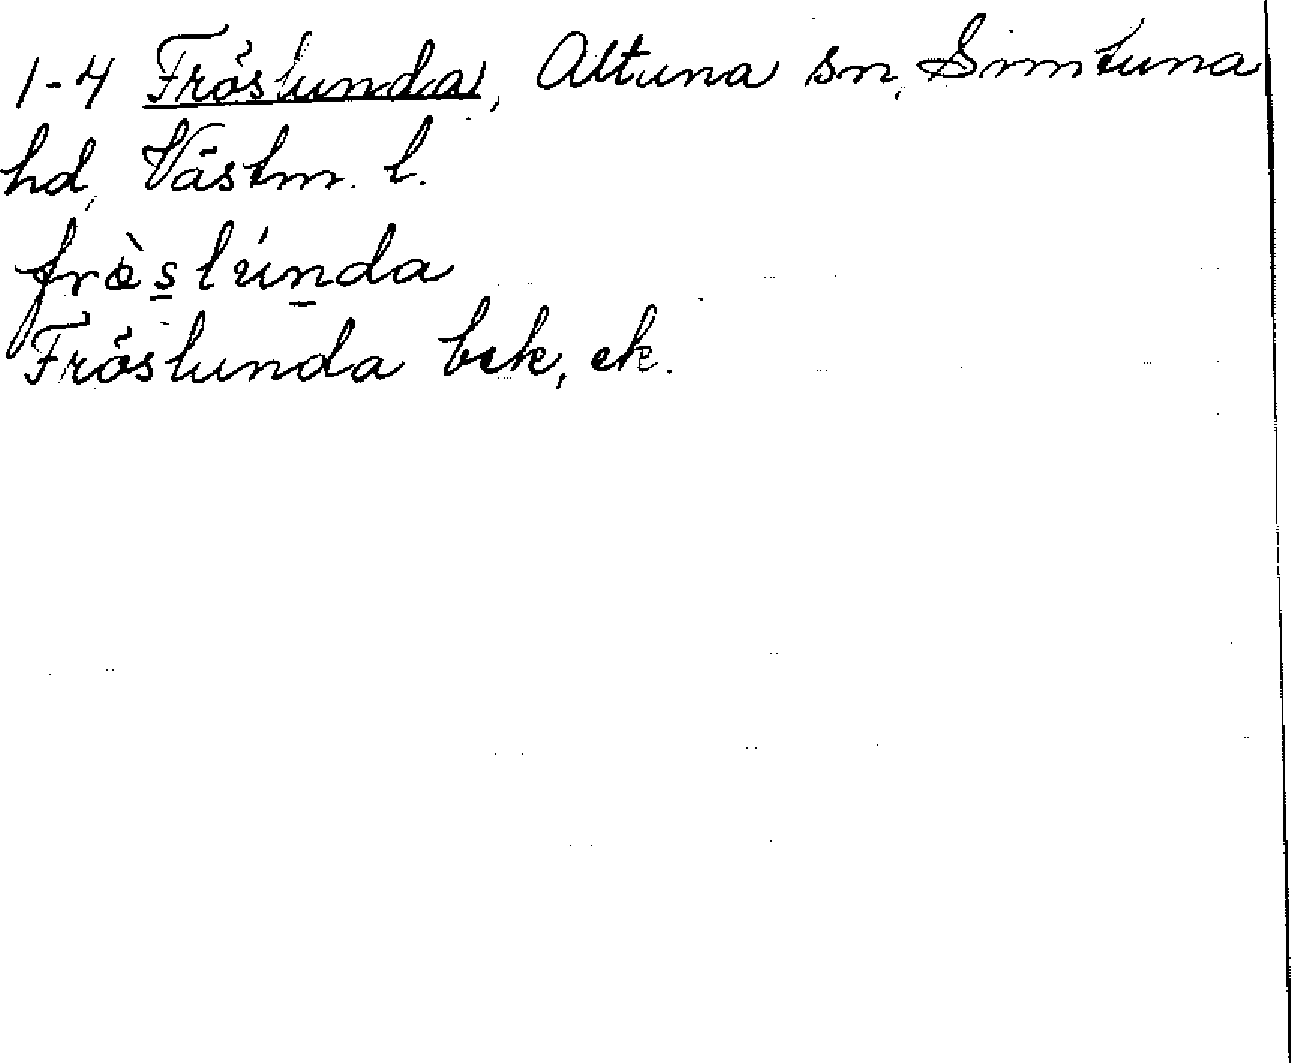 1-4 Fröslunda, Altuna sn, Simtuna
hd, Västm. l.
frὼslúnda
Fröslunda bek, ek.